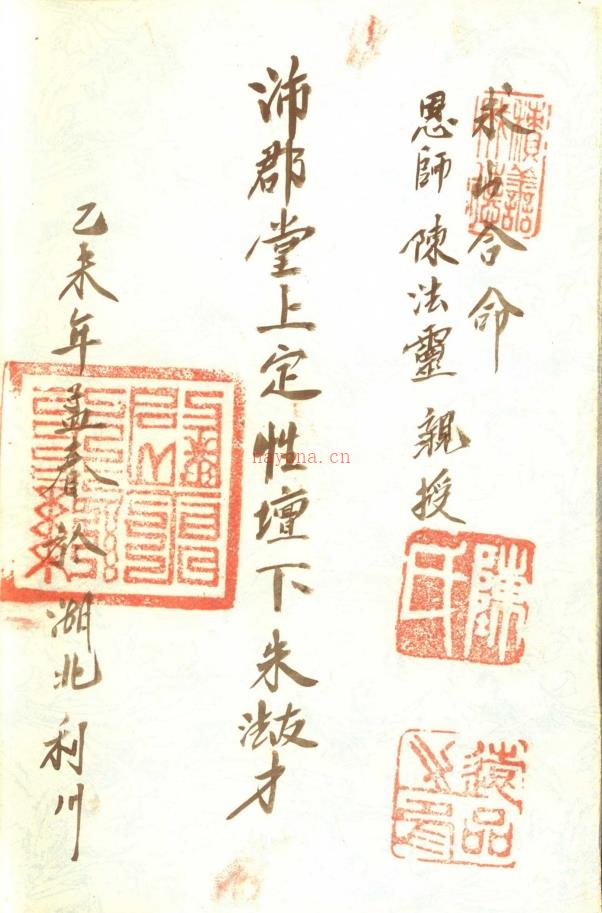 合命
恩師陳法靈親授
沛郡堂上定性壇下朱才
乙未年孟春於湖北利川
陳氏
nayona.cn